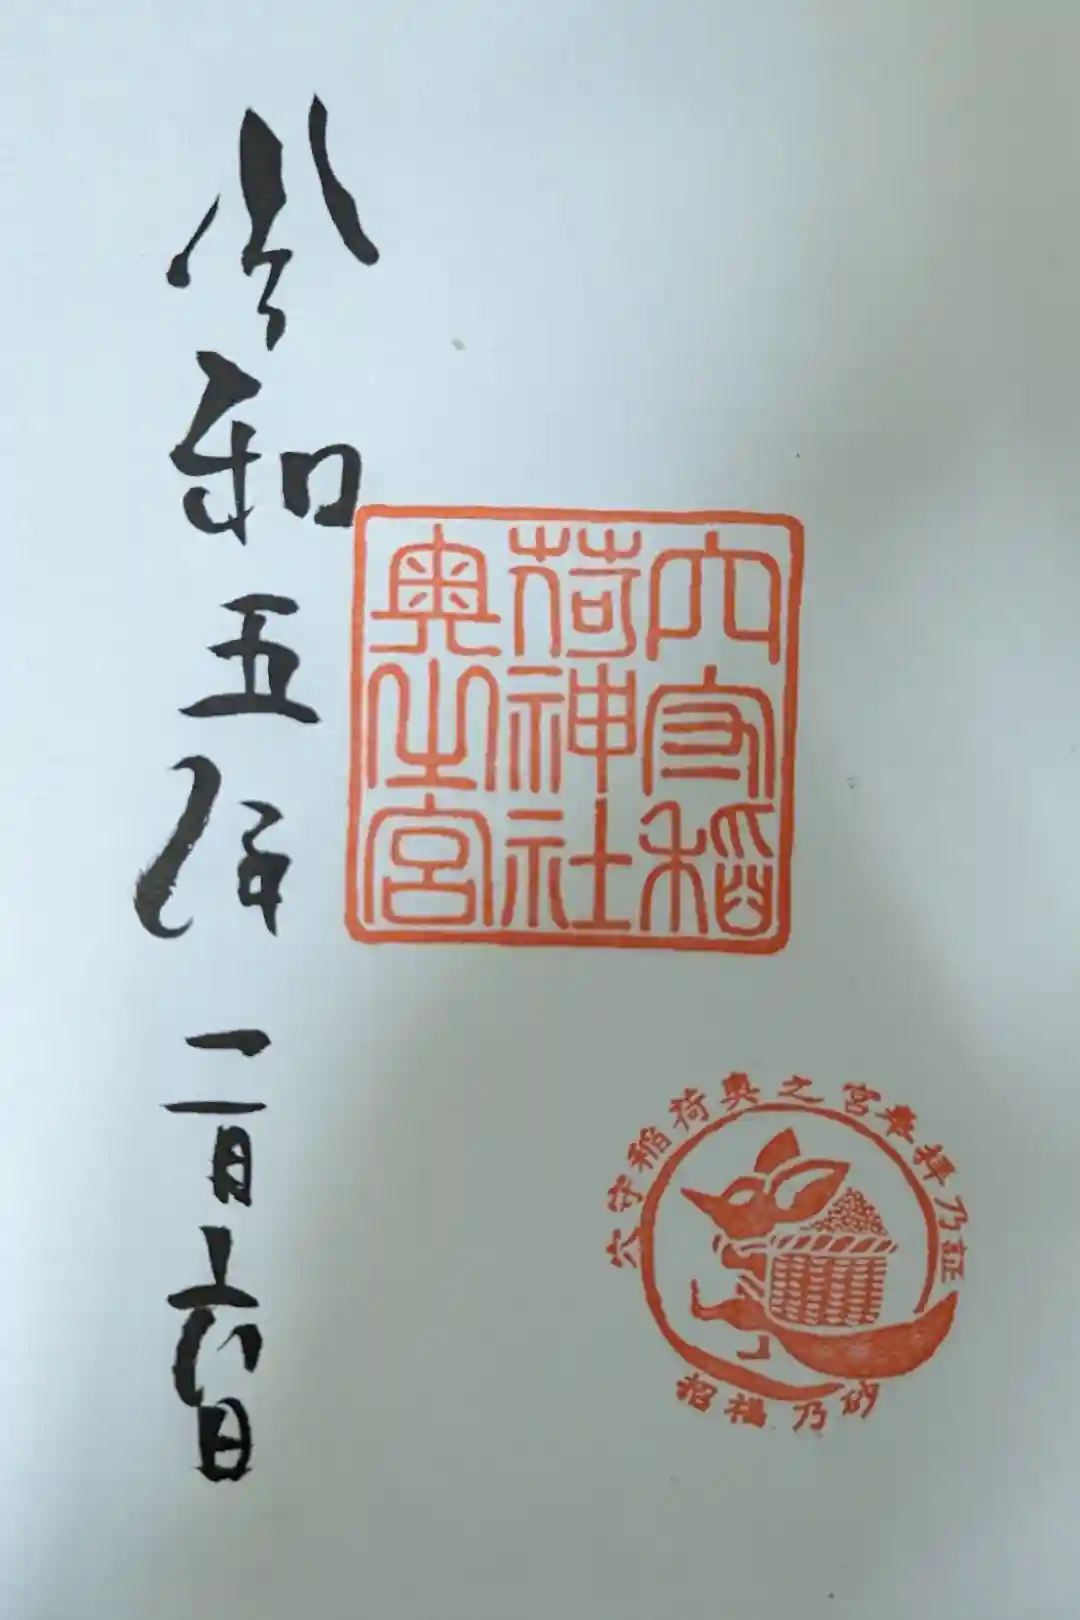 穴守稲
荷神社
奥之宮
令和五年二月十六日
穴守稲荷奥之宮奉拝乃証
招福乃砂